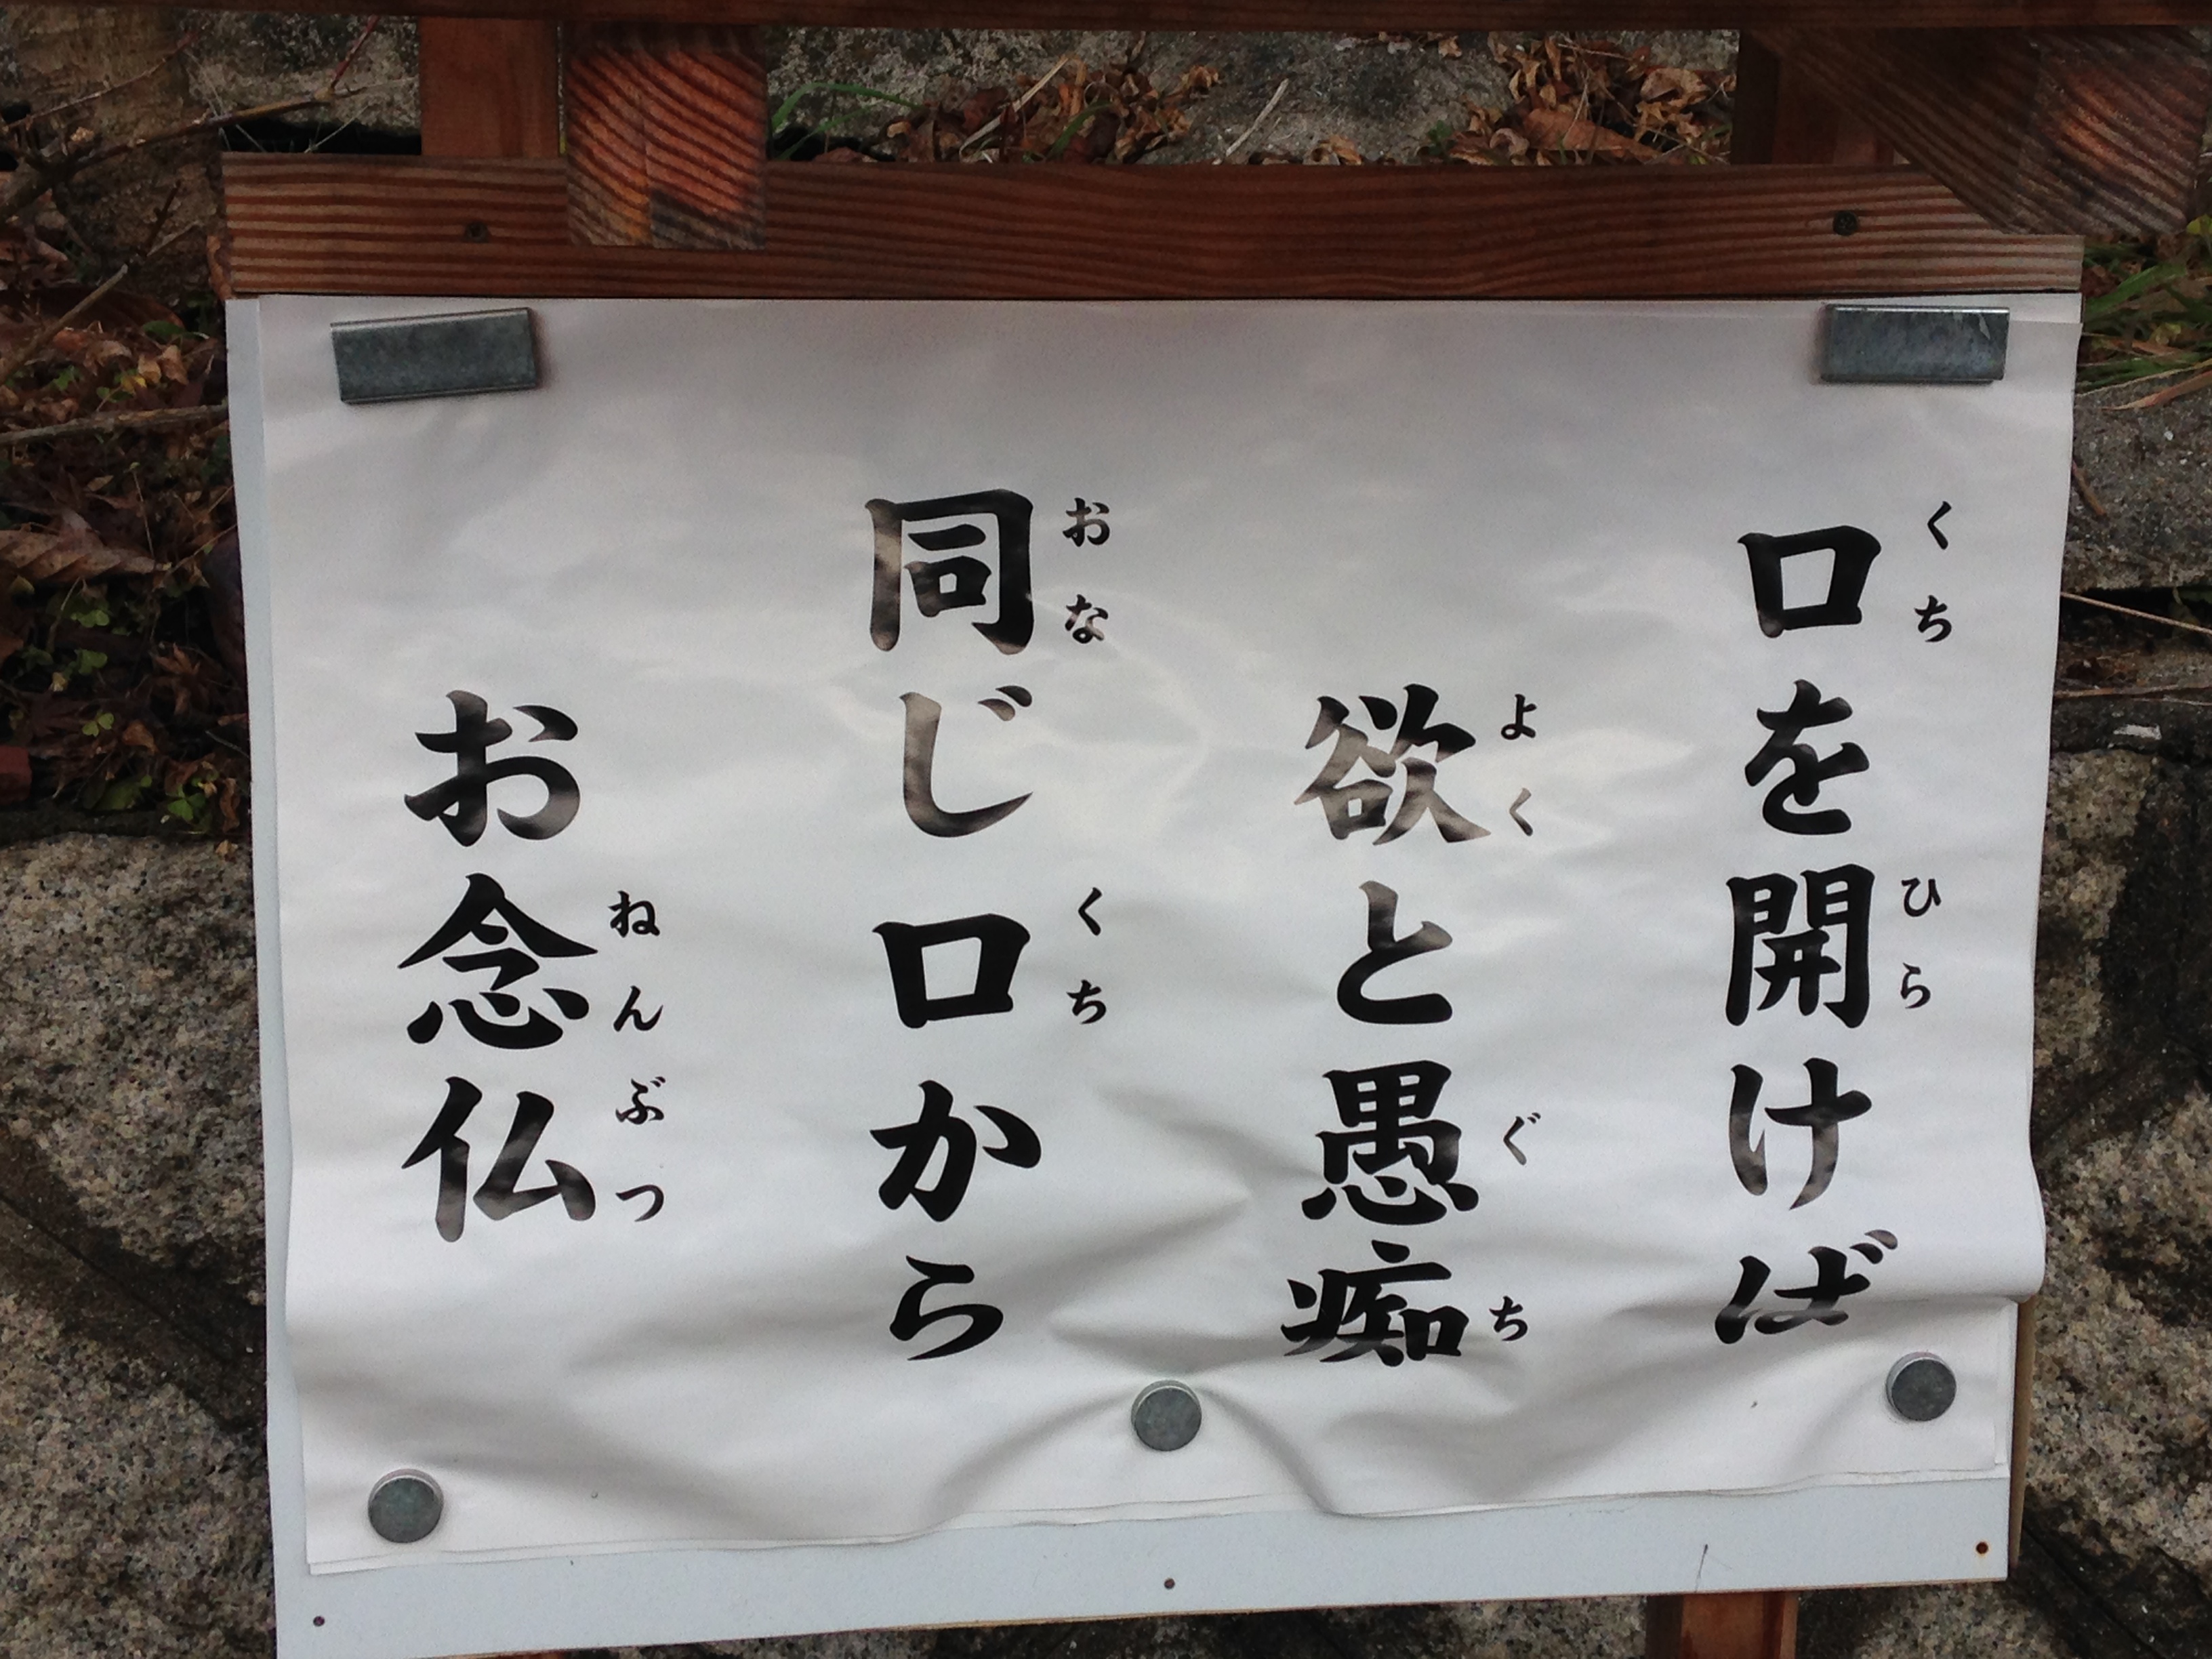 口を開けば
欲と愚痴
同じ口から
お念仏
くち
ひら
よく
ぐ
ち
おな
くち
ねんぶつ